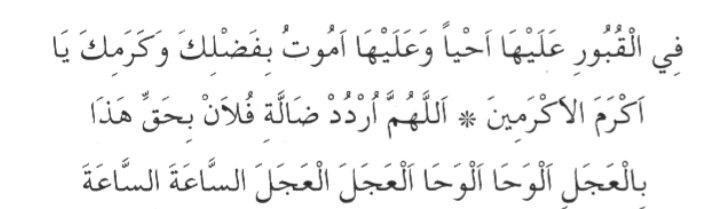 فِي الْقُبُورِ عَلَيْهَا اَحْياً وَعَلَيْهَا اَمُوتُ بِفَضْلِكَ وَكَرَمِكَ يَا
اَكْرَمَ الاَكْرَمِينَ * اَللَّهُمَّ اُرْدُدْ ضَالَّةِ فُلاَنْ بِحَقِّ هَذَا
بِالْعَجَلِ اَلْوَحَا اَلْوَحَا اَلْعَجَلَ الْعَجَلَ السَّاعَةَ السَّاعَةَ